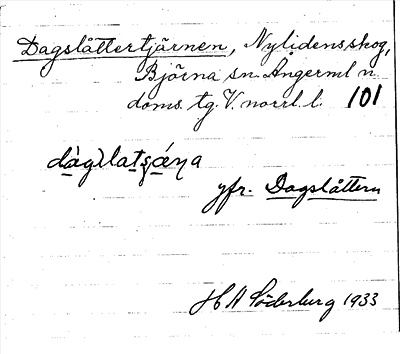 Dagslåttertjärnen, Nylidensskog,
Björna sn. Ångerml n.
doms. tg. V. norrl. l. 101
yfr. Dagslåttern
H A Söderberg 1933